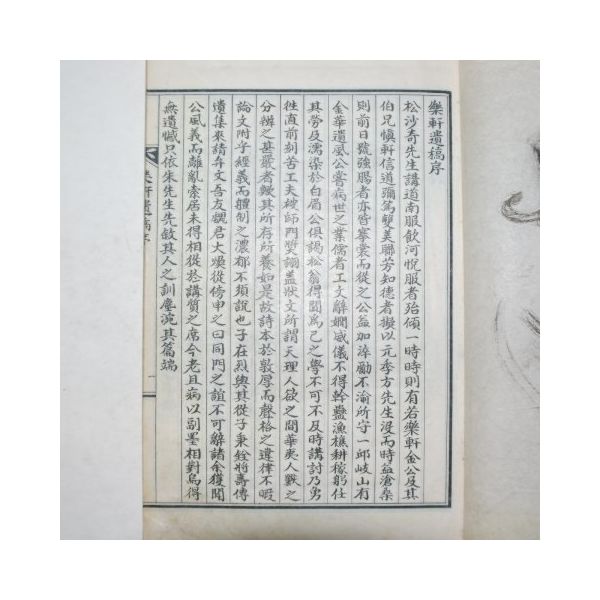 樂軒遺稿序
松沙奇先生講道南服飮河悅服者殆傾一時時則有若樂軒金公及其
伯兄愼軒信道彌篤雙美聯芳知德者擬以元季方先生沒而時益滄桑
則前日號強腸者亦皆搴裳而從之公益加淬勵不渝所守一邱岐山有
金華遺風公嘗病世之業儒者工文辭嫺威儀不得幹蠱漁樵耕稼躬任
其勞及濡染於白眉公俱謁松翁得聞爲己之學不可不及時講討乃勇
徃直前刻苦工夫稗師門奬詡盖狀文所謂天理人欲之間華夷人獸之
分辨之甚嚴者轍其所存所養如是故詩本於敦厚而聲格之違律不暇
論文附子經義而軆制之濃郁不須說也子在烈與其從子秉銓將壽傳
遺集來請弁文吾友魏君大煥從傍申之曰同門之誼不可辭諸余獲聞
公風義而離亂索居未得相從於講質之席今老且病以副墨相對烏得
無遺憾只依朱先生先敍其人之訓塵浼其篇端
樂軒遺稿序
一